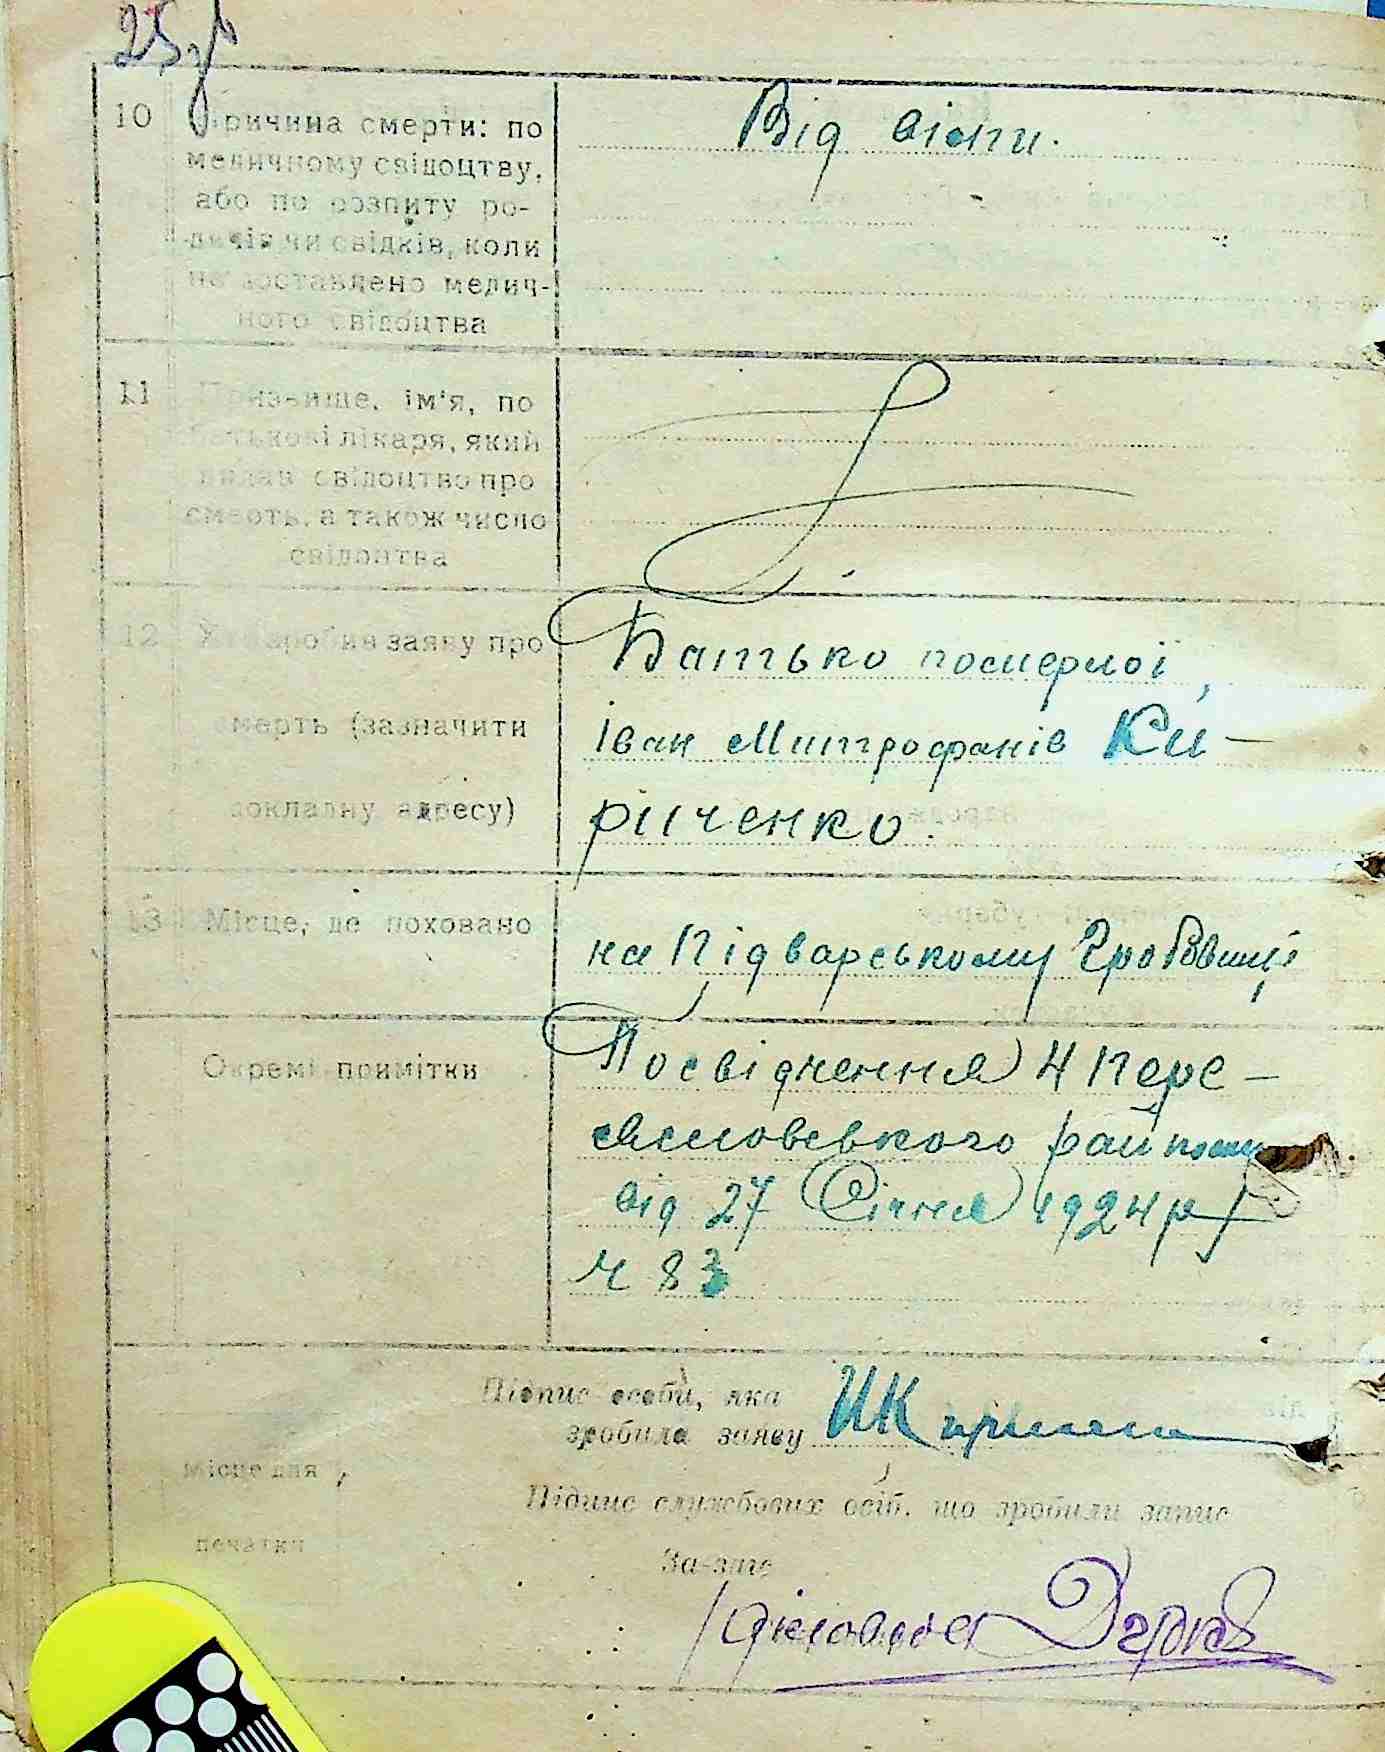 25
10 Причина смерти: по
медичному свідоцтву,
або по розпиту ро-
дичів чи свідків, коли
не доставлено медич-
ного свідоцтва
Від віспи.
11 Призвище, ім'я, по
батькові лікаря, який
видав свідоцтво про
смерть, а також число
свідоцтва
12 Хто зробив заяву про
смерть (зазначити
докладну адресу)
Батько посмерлої,
Іван Митрофанів Ки-
риченко.
13 Місце, де поховано
на Підварському Гробовищі
Окремі примітки
Посвідчення Ч Пере-
яславського рай
від 27 Січня 1924 р
ч 83
Підпис особи, яка
зробила заяву
ИК
Місце для
печатки
Підпис службових осіб, що зробили запис
За-загс